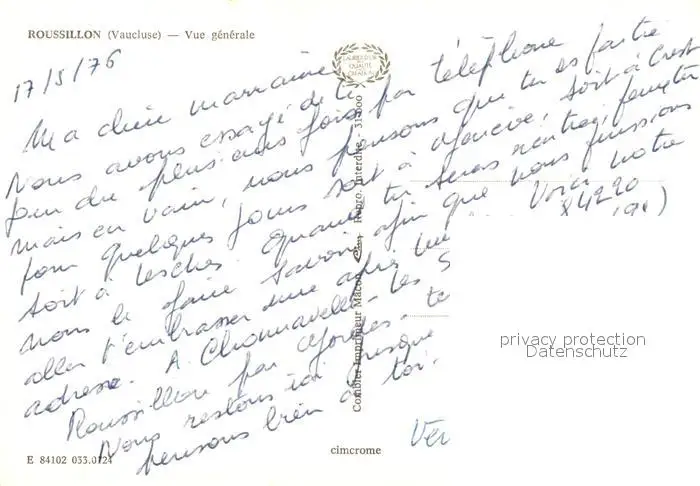 ROUSSILLON (Vaucluse) — Vue générale
LAURIERS D'OR
DE QUALITÉ
CRÉATION
17/5/76
Ma chère marraine
Nous avons essayé de te
joindre plusieurs fois par téléphone
mais en vain, nous pensons que tu es partie
pour quelques jours soit à soit à Crest
soit à Lesches. Quand tu seras rentrée,
nous le faire savoir afin que nous puissions
aller t'embrasser une après Voici notre
adresse. A. Les S
84220
Roussillon par Gordes. te
Nous restons ici jusque
pensons bien à toi.
Combier Imprimeur Macon Repro. Interdite - 31.000
privacy protection
Datenschutz
E 84102 033.0124
cimcrome